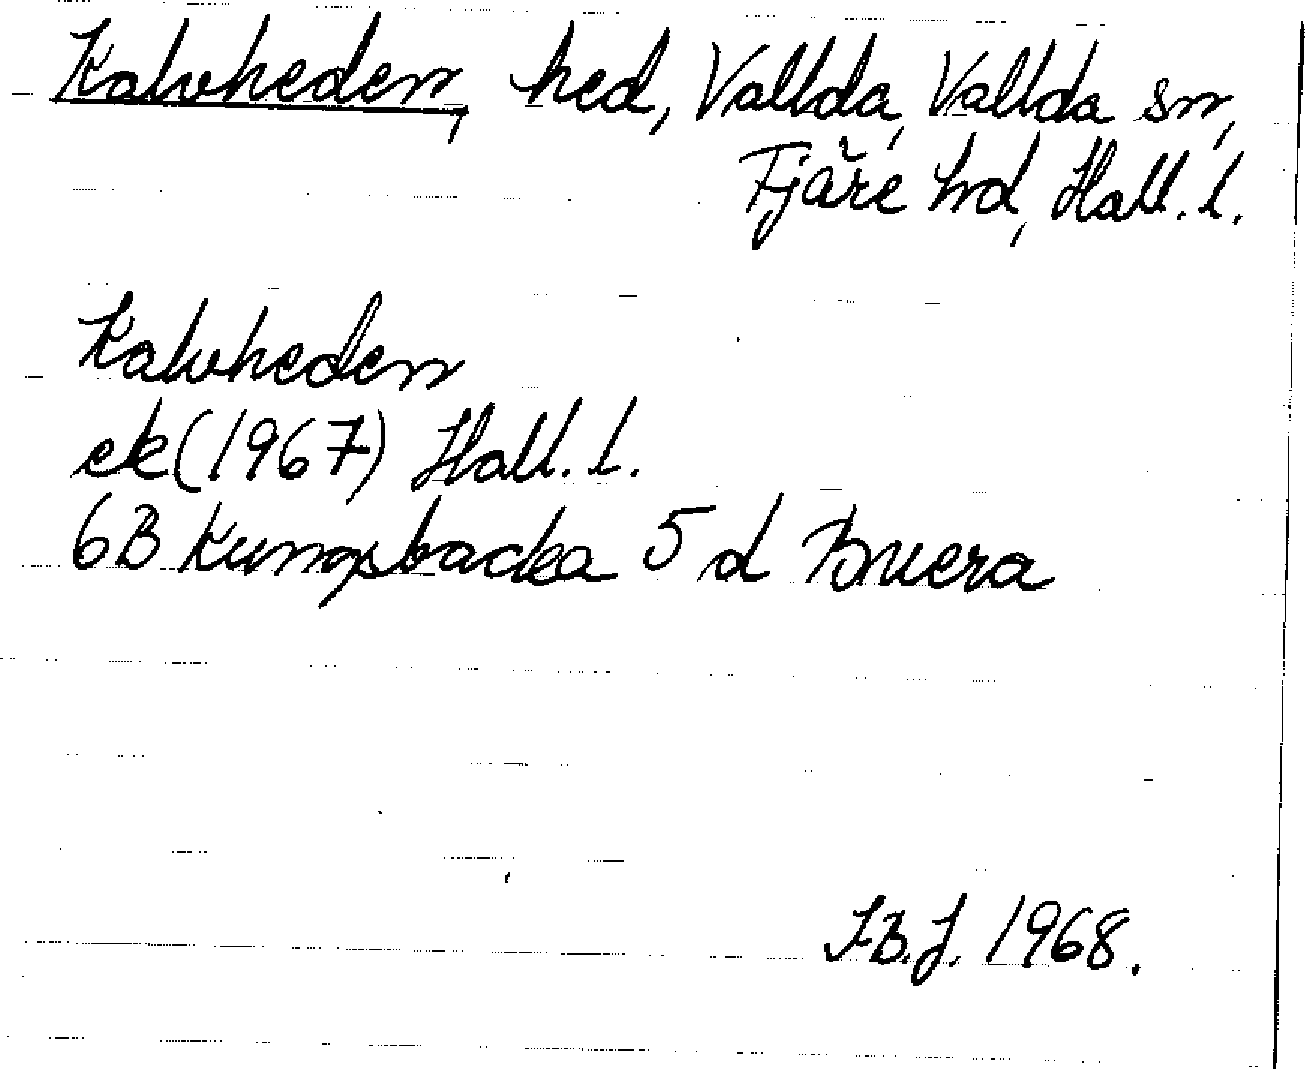 Kalvheden, hed, Vallda, Vallda sn,
Fjäre hd, Hall. l.
Kalvheden
ek (1967) Hall. l.
6B Kungsbacka 5 d Buera
I.B.J. 1968.